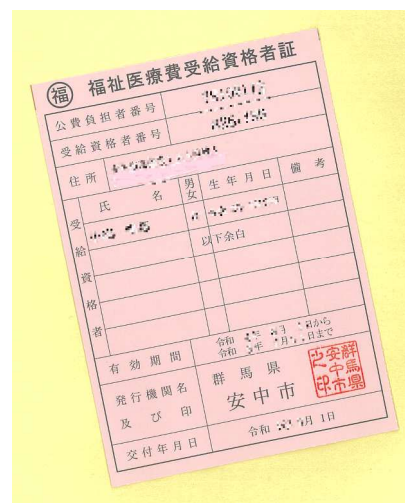 福 福祉医療費受給資格者証
公費負担者番号
受給資格者番号
住所
受給資格者
氏名 男女 生年月日 備考
以下余白
有効期間
令和 年 月 日から
令和 年 月 日まで
発行機関名及び印
群馬県
安中市
群馬県安中市之印
交付年月日
令和 月1日